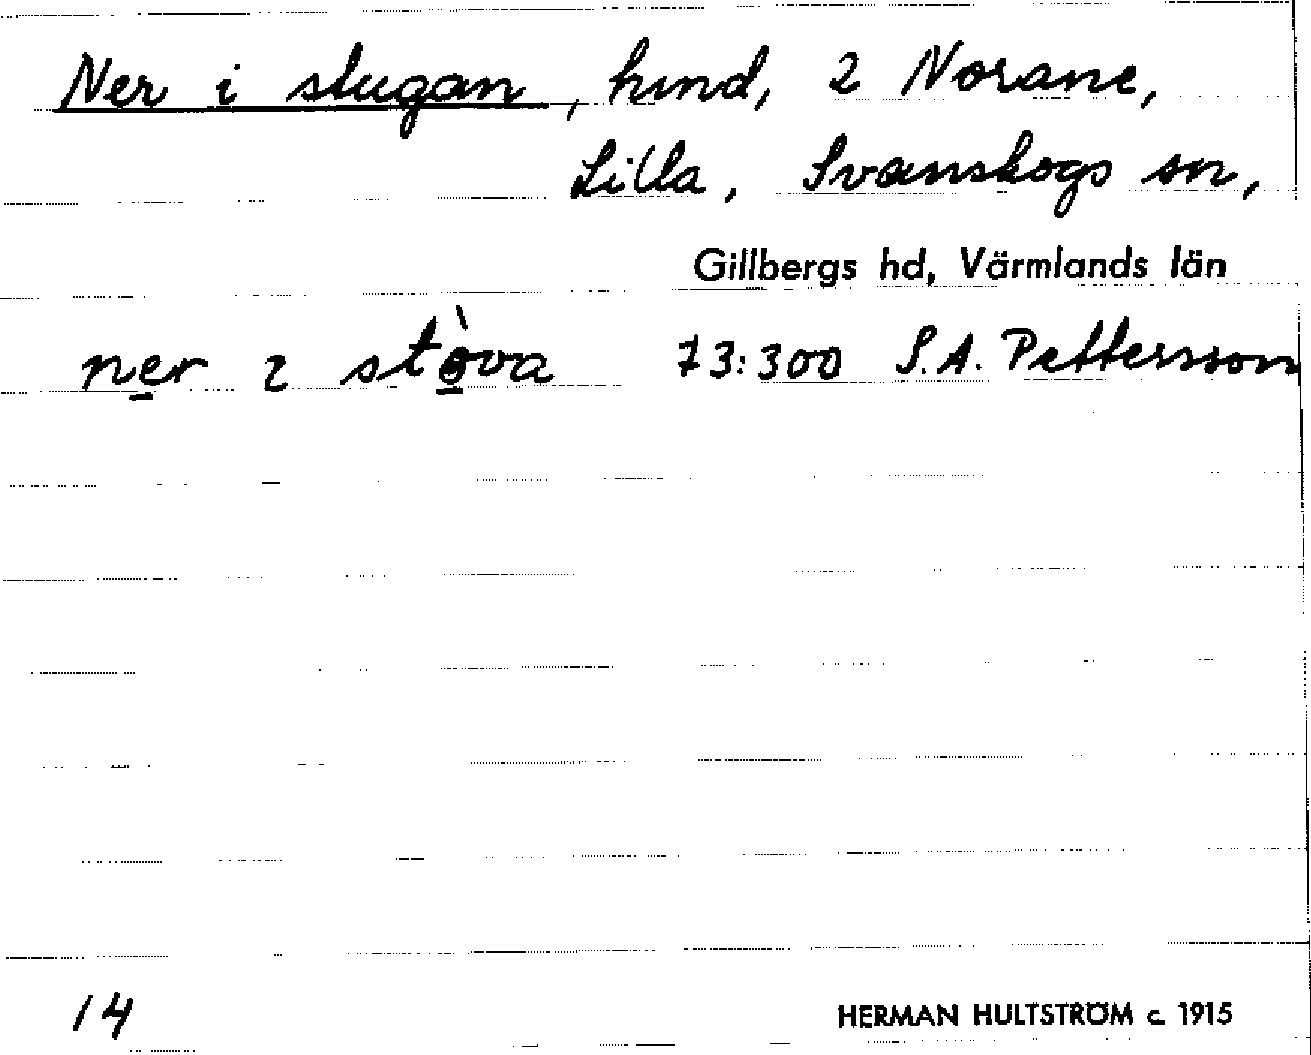 Ner i stugan, hmd, 2 Norane,
Lilla, Svanskogs sn,
Gillbergs hd, Värmlands län
ner ɩ stöva 73:300 S.A. Pettersson
14
HERMAN HULTSTRÖM c. 1915